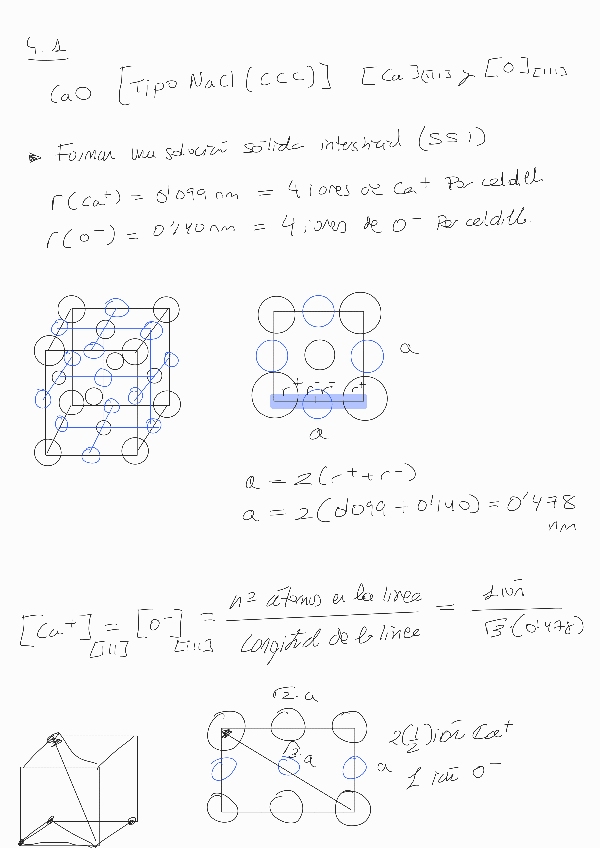 4.1
CaO [Tipo NaCl (CCC)] [Ca][111] y [O][111]
Formar una solución sólida intersticial (SSI)
r(Ca⁺) = 0'099 nm = 4 iones de Ca⁺ Por celdilla
r(O⁻) = 0'140 nm = 4 iones de O⁻ Por celdilla
r⁺ r⁻ r⁻ r⁺
a
a
a = 2(r⁺+r⁻)
a = 2(0'099 + 0'140) = 0'478 nm
[Ca⁺][111] = [O⁻][111] = nº átomos en la línea / Longitud de la línea = 1 ión / √3·(0'478)
√2·a
√3·a
a
2(1/2) ión Ca⁺
1 ión O⁻